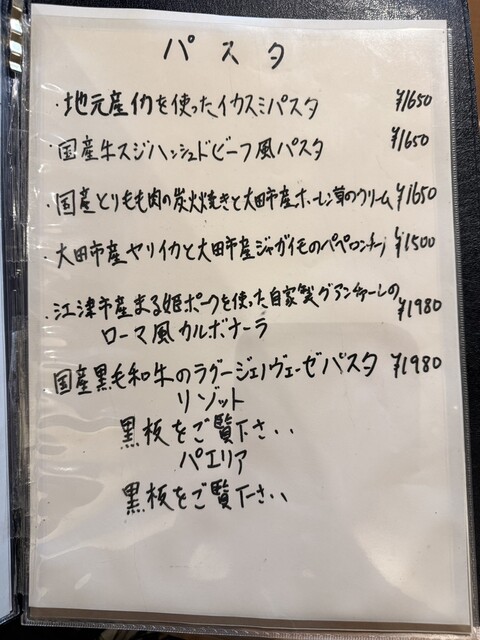 パスタ
・地元産イカを使ったイカスミパスタ ¥1650
・国産牛スジハッシュドビーフ風パスタ ¥1650
・国産とりもも肉の炭火焼きと大田市産ホーレン草のクリーム ¥1650
・大田市産ヤリイカと大田市産ジャガイモのペペロンチーノ ¥1500
・江津市産まる姫ポークを使った自家製グアンチャーレの ¥1980
ローマ風カルボナーラ
国産黒毛和牛のラグージェノヴェーゼパスタ ¥1980
リゾット
黒板をご覧下さい、
パエリア
黒板をご覧下さい、